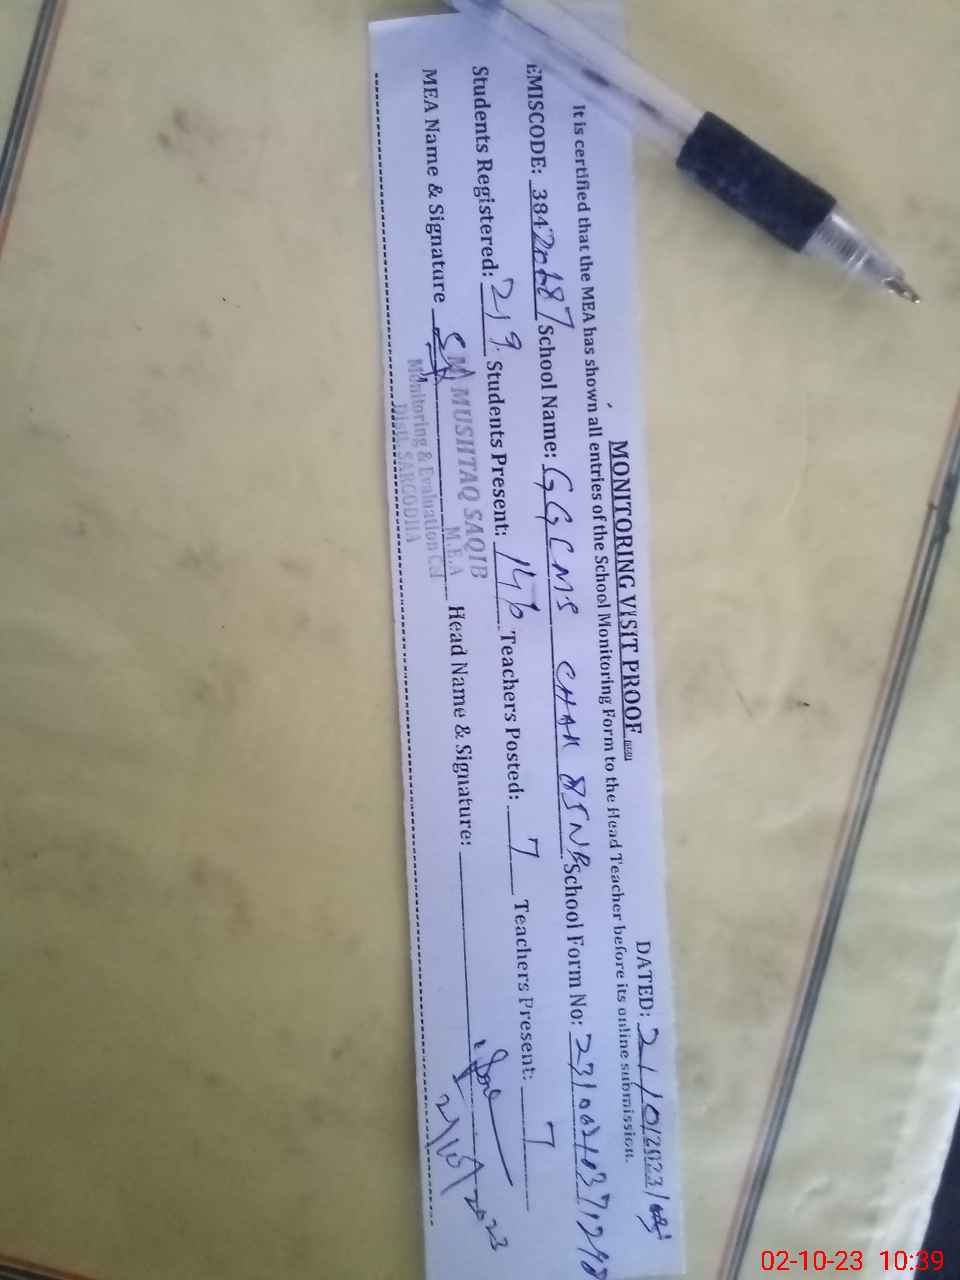 MONITORING VISIT PROOF
DATED: 2/10/2023
It is certified that the MEA has shown all entries of the School Monitoring Form to the Head Teacher before its online submission.
EMISCODE: School Name: GGCMS CHAK 85NB School Form No:
Students Registered: 219 Students Present: 146 Teachers Posted: 7 Teachers Present: 7
MEA Name & Signature Head Name & Signature:
MUSHTAQ SAQIB
M.E.A
Monitoring & Evaluation Cel
Distt. SARGODHA
2/10/2023
02-10-23 10:39